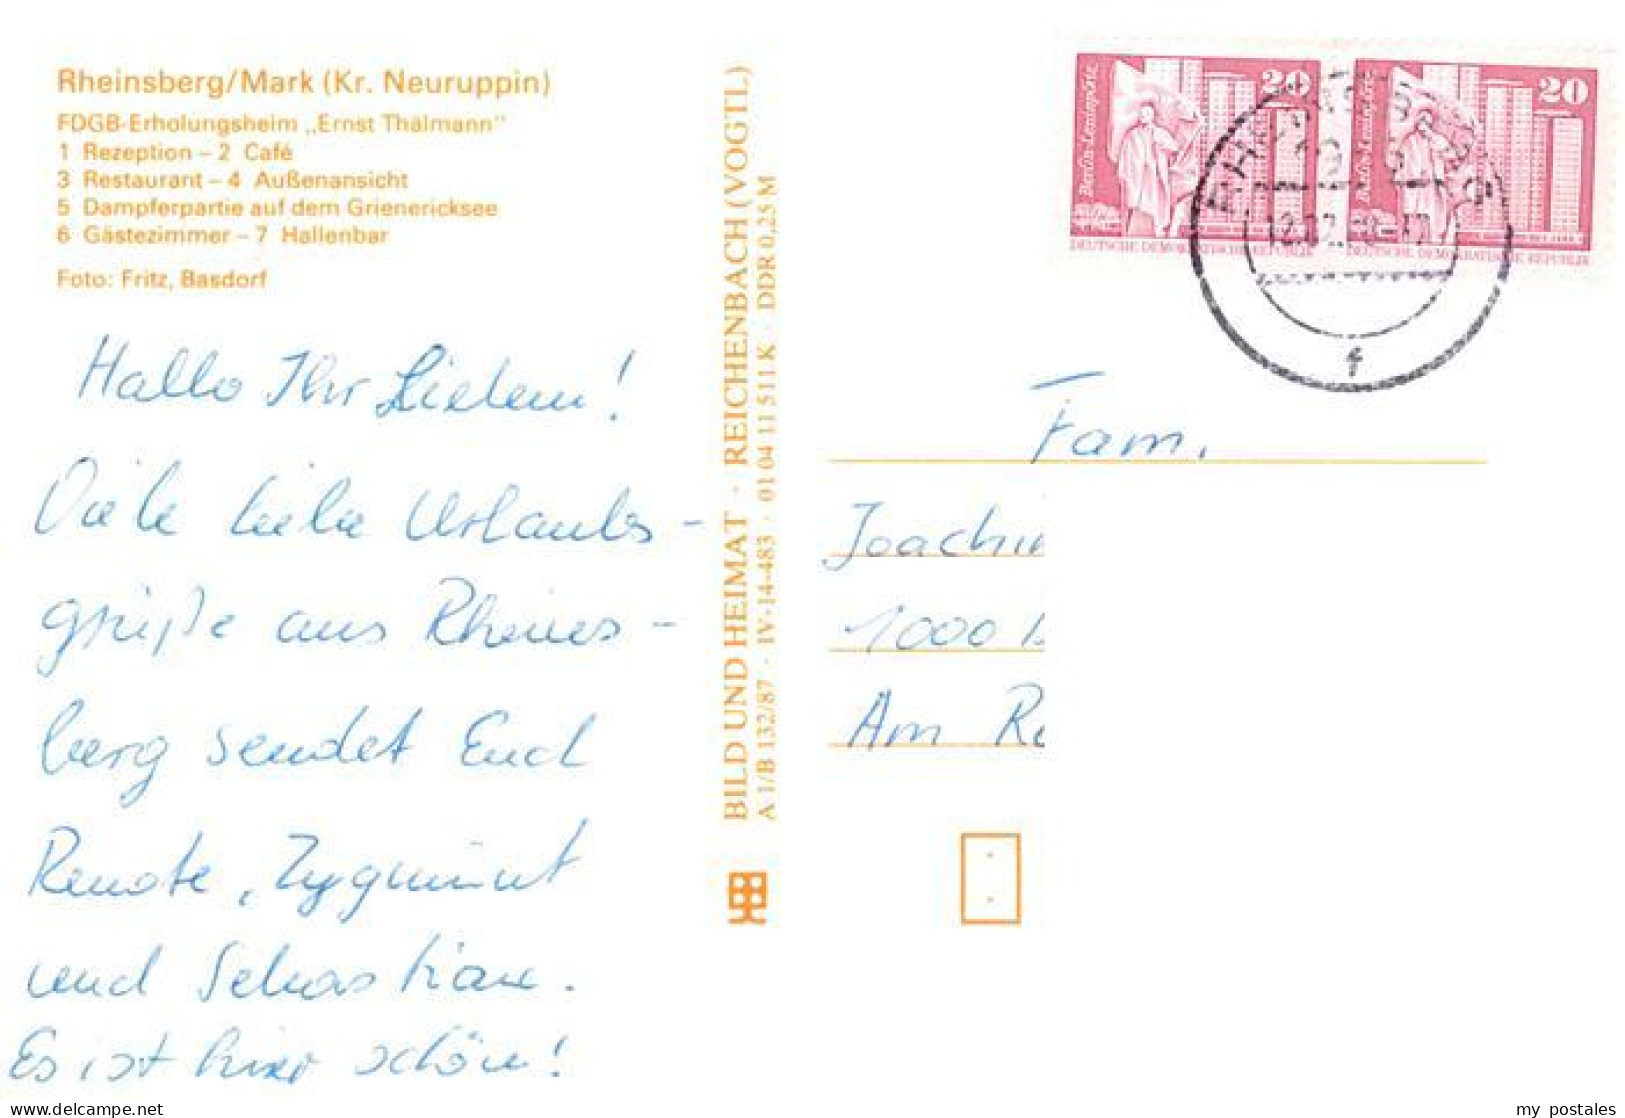 Rheinsberg/Mark (Kr. Neuruppin)
FDGB-Erholungsheim „Ernst Thälmann"
1 Rezeption – 2 Café
3 Restaurant – 4 Außenansicht
5 Dampferpartie auf dem Grienericksee
6 Gästezimmer – 7 Hallenbar
Foto: Fritz, Basdorf
Hallo Ihr Lieben!
Viele liebe Urlaubs-
grüße aus Rheins-
berg sendet Euch
Renate, Zygmunt
und Sebastian.
Es ist hier schön!
BILD UND HEIMAT · REICHENBACH (VOGTL)
A 1/B 132/87 · IV-14-483 · 01 04 11 511 K · DDR 0,25 M
20
Berlin-Leninplatz
DEUTSCHE DEMOKRATISCHE REPUBLIK
20
Berlin-Leninplatz
DEUTSCHE DEMOKRATISCHE REPUBLIK
RHEINSBERG
f
Fam.
Joachi
1000
Am
delcampe.net
my_postales